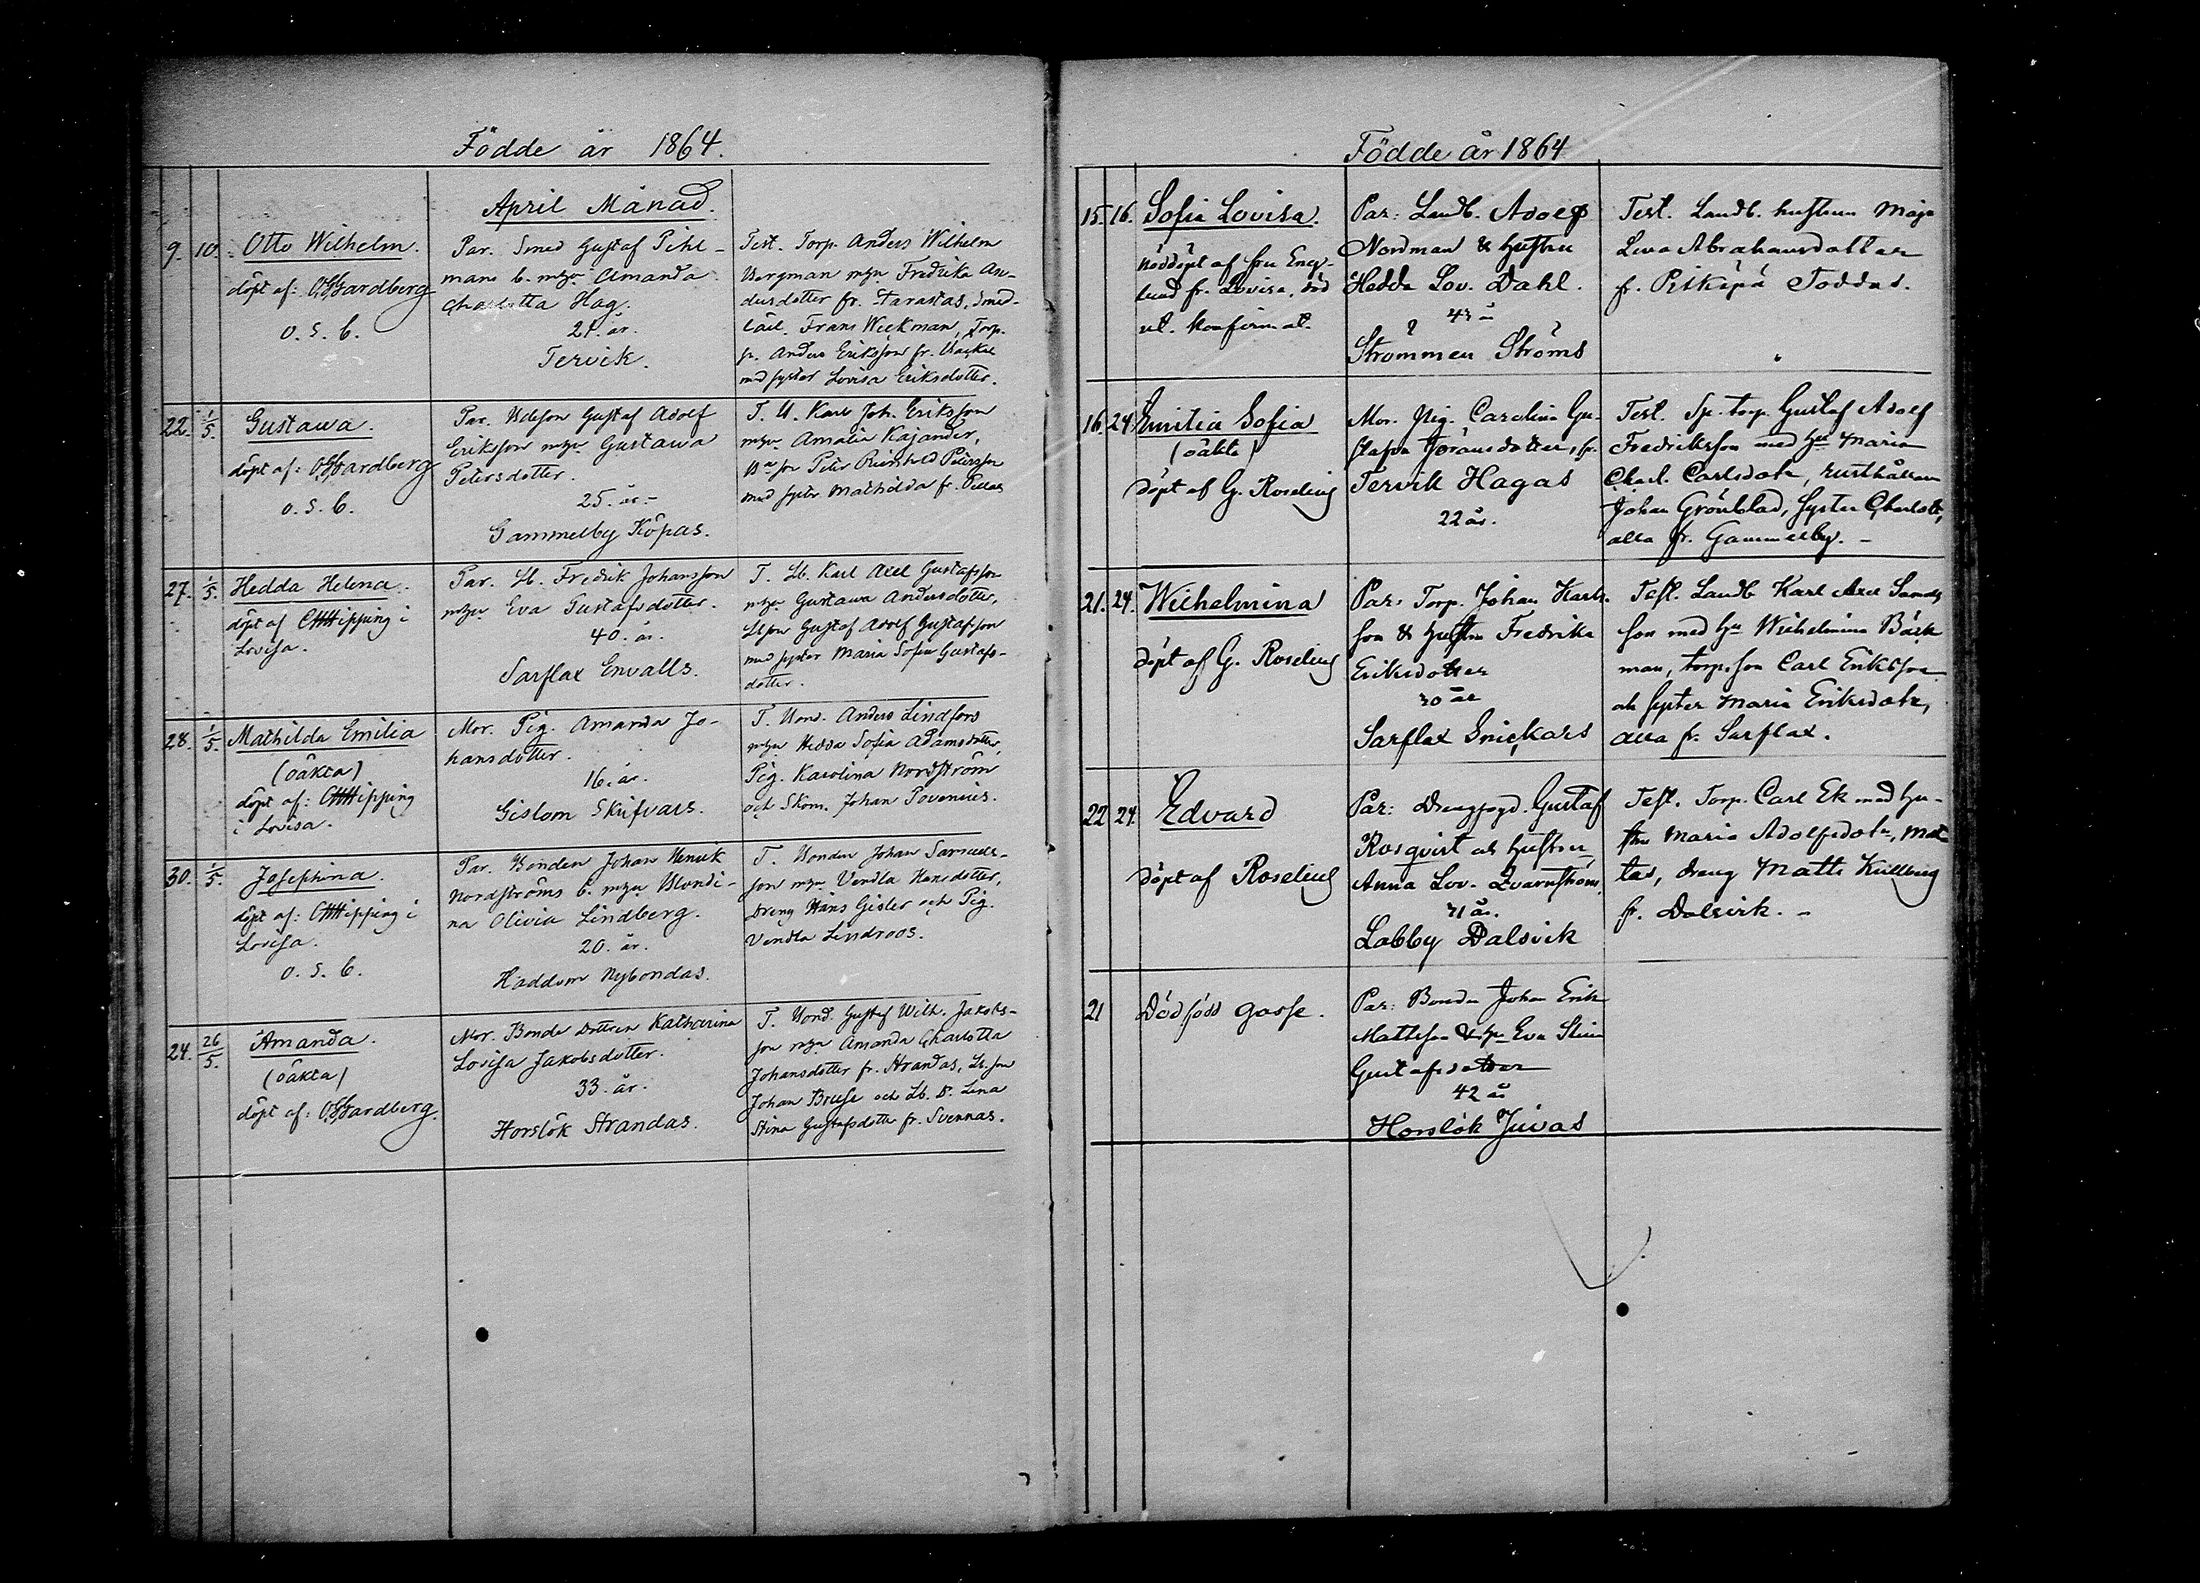 Födde år 1864.
April Månad.
9. 10. Otto Wilhelm.
döpt af:
o. s. b.
Par. Smed Gustaf Pihl-
mans b. Amanda
Charlotta Hag.
21. år.
Tervik.
Test. Torp. Anders Wilhelm
Bergman Fredrika An-
dersdotter fr. Tarastas, Smed-
Frans Wickman, Torp.
Anders Eriksson fr.
med syster Lovisa Eriksdotter.
22. 1/5. Gustava.
döpt af:
o. s. b.
Par. Gustaf Adolf
Eriksson Gustava
Petersdotter.
25. år.-
Gammelby Köpas.
T. U. Karl Joh. Eriksson
Amalia Kajander,
Peter Reinhold Petersson
med syster Mathilda fr.
27. 1/5. Hedda Helena.
döpt af i
Lovisa.
Par. Lb. Fredrik Johansson
Eva Gustafsdotter.
40. år.
Sarflax Envalls.
T. Lb. Karl Axel Gustafsson
Gustava Andersdotter,
Gustaf Adolf Gustafsson
med syster Maria Sofia Gustafs-
dotter.
28. 1/5. Mathilda Emilia
(oäkta)
döpt af:
i Lovisa.
Mor. Pig. Amanda Jo-
hansdotter.
16. år.
Gislom Skifvars.
T. Bond. Anders Lindfors
Hedda Sofia Adamsdotter,
Pig. Karolina Nordström
och Skom. Johan Povenius.
30. 1/5. Josephina.
döpt af: i
Lovisa.
o. s. b.
Par. Bonden Johan Henrik
Nordströms b. Blondi-
na Olivia Lindberg.
20. år.
Haddom Nybondas.
T. Bonden Johan Samuels-
son Vendla Hansdotter,
Dreng Hans Gisler och Pig.
Vendla Lindroos.
24. 26/5. Amanda.
(oäkta)
döpt af:
Mor. Bonde Dottren Katharina
Lovisa Jakobsdotter.
33. år.
Horslök Strandas.
T. Bond. Gustaf Wilh. Jakobs-
son Amanda Charlotta
Johansdotter fr. Strandas,
Johan Bruse och Lb. D. Lena
Stina Gustafsdotter fr. Svennas.
Födde år 1864
15. 16. Sofia Lovisa.
nöddöpt af fru Eng-
lund fr. Lovisa, död
ut. konfirmat.
Par: Landb. Adolf
Nordman & hustru
Hedda Lov. Dahl.
43 å
Strömmen Ströms
Test. Landb. hustrun Maja
Lena Abrahamsdotter
f. Pitkäpä Toddas.
16. 24. Emilia Sofia
(oäkta)
döpt af G. Roselius
Mor. Pig. Carolina Gu-
stafva Jöransdotter, fr.
Tervik Hagas
22 år.
Test. Sp. torp. Gustaf Adolf
Fredriksson med hu Maria
Charl. Carlsdotr,
Johan Grönblad, syster Charlott,
alla fr. Gammelby. -
21. 24. Wilhelmina
döpt af G. Roselius
Par: Torp. Johan Karls-
son & hustru Fredrika
Eriksdotter
30 år
Sarflax Snickars
Test. Landb. Karl Axel
son med hu Wilhelmina Bäck
man, torp. son Carl Eriksson
och syster Maria Eriksdotr,
alla fr. Sarflax.
22 24. Edvard
döpt af Roselius
Par: Drengfogd. Gustaf
Rosqvist och hustru
Anna Lov. Qvarnström.
31 år.
Labby Dalsvik
Test. Torp. Carl Ek med hu-
stru Maria Adolfsdotr, Mat
tas, dreng Matts Kullberg
fr. Dalsvik. -
21 Dödfödd gosse.
Par: Bonden Johan Erik
Mattsson & hu Eva Stina
Gustafsdotter
42 år
Horslök Juvas